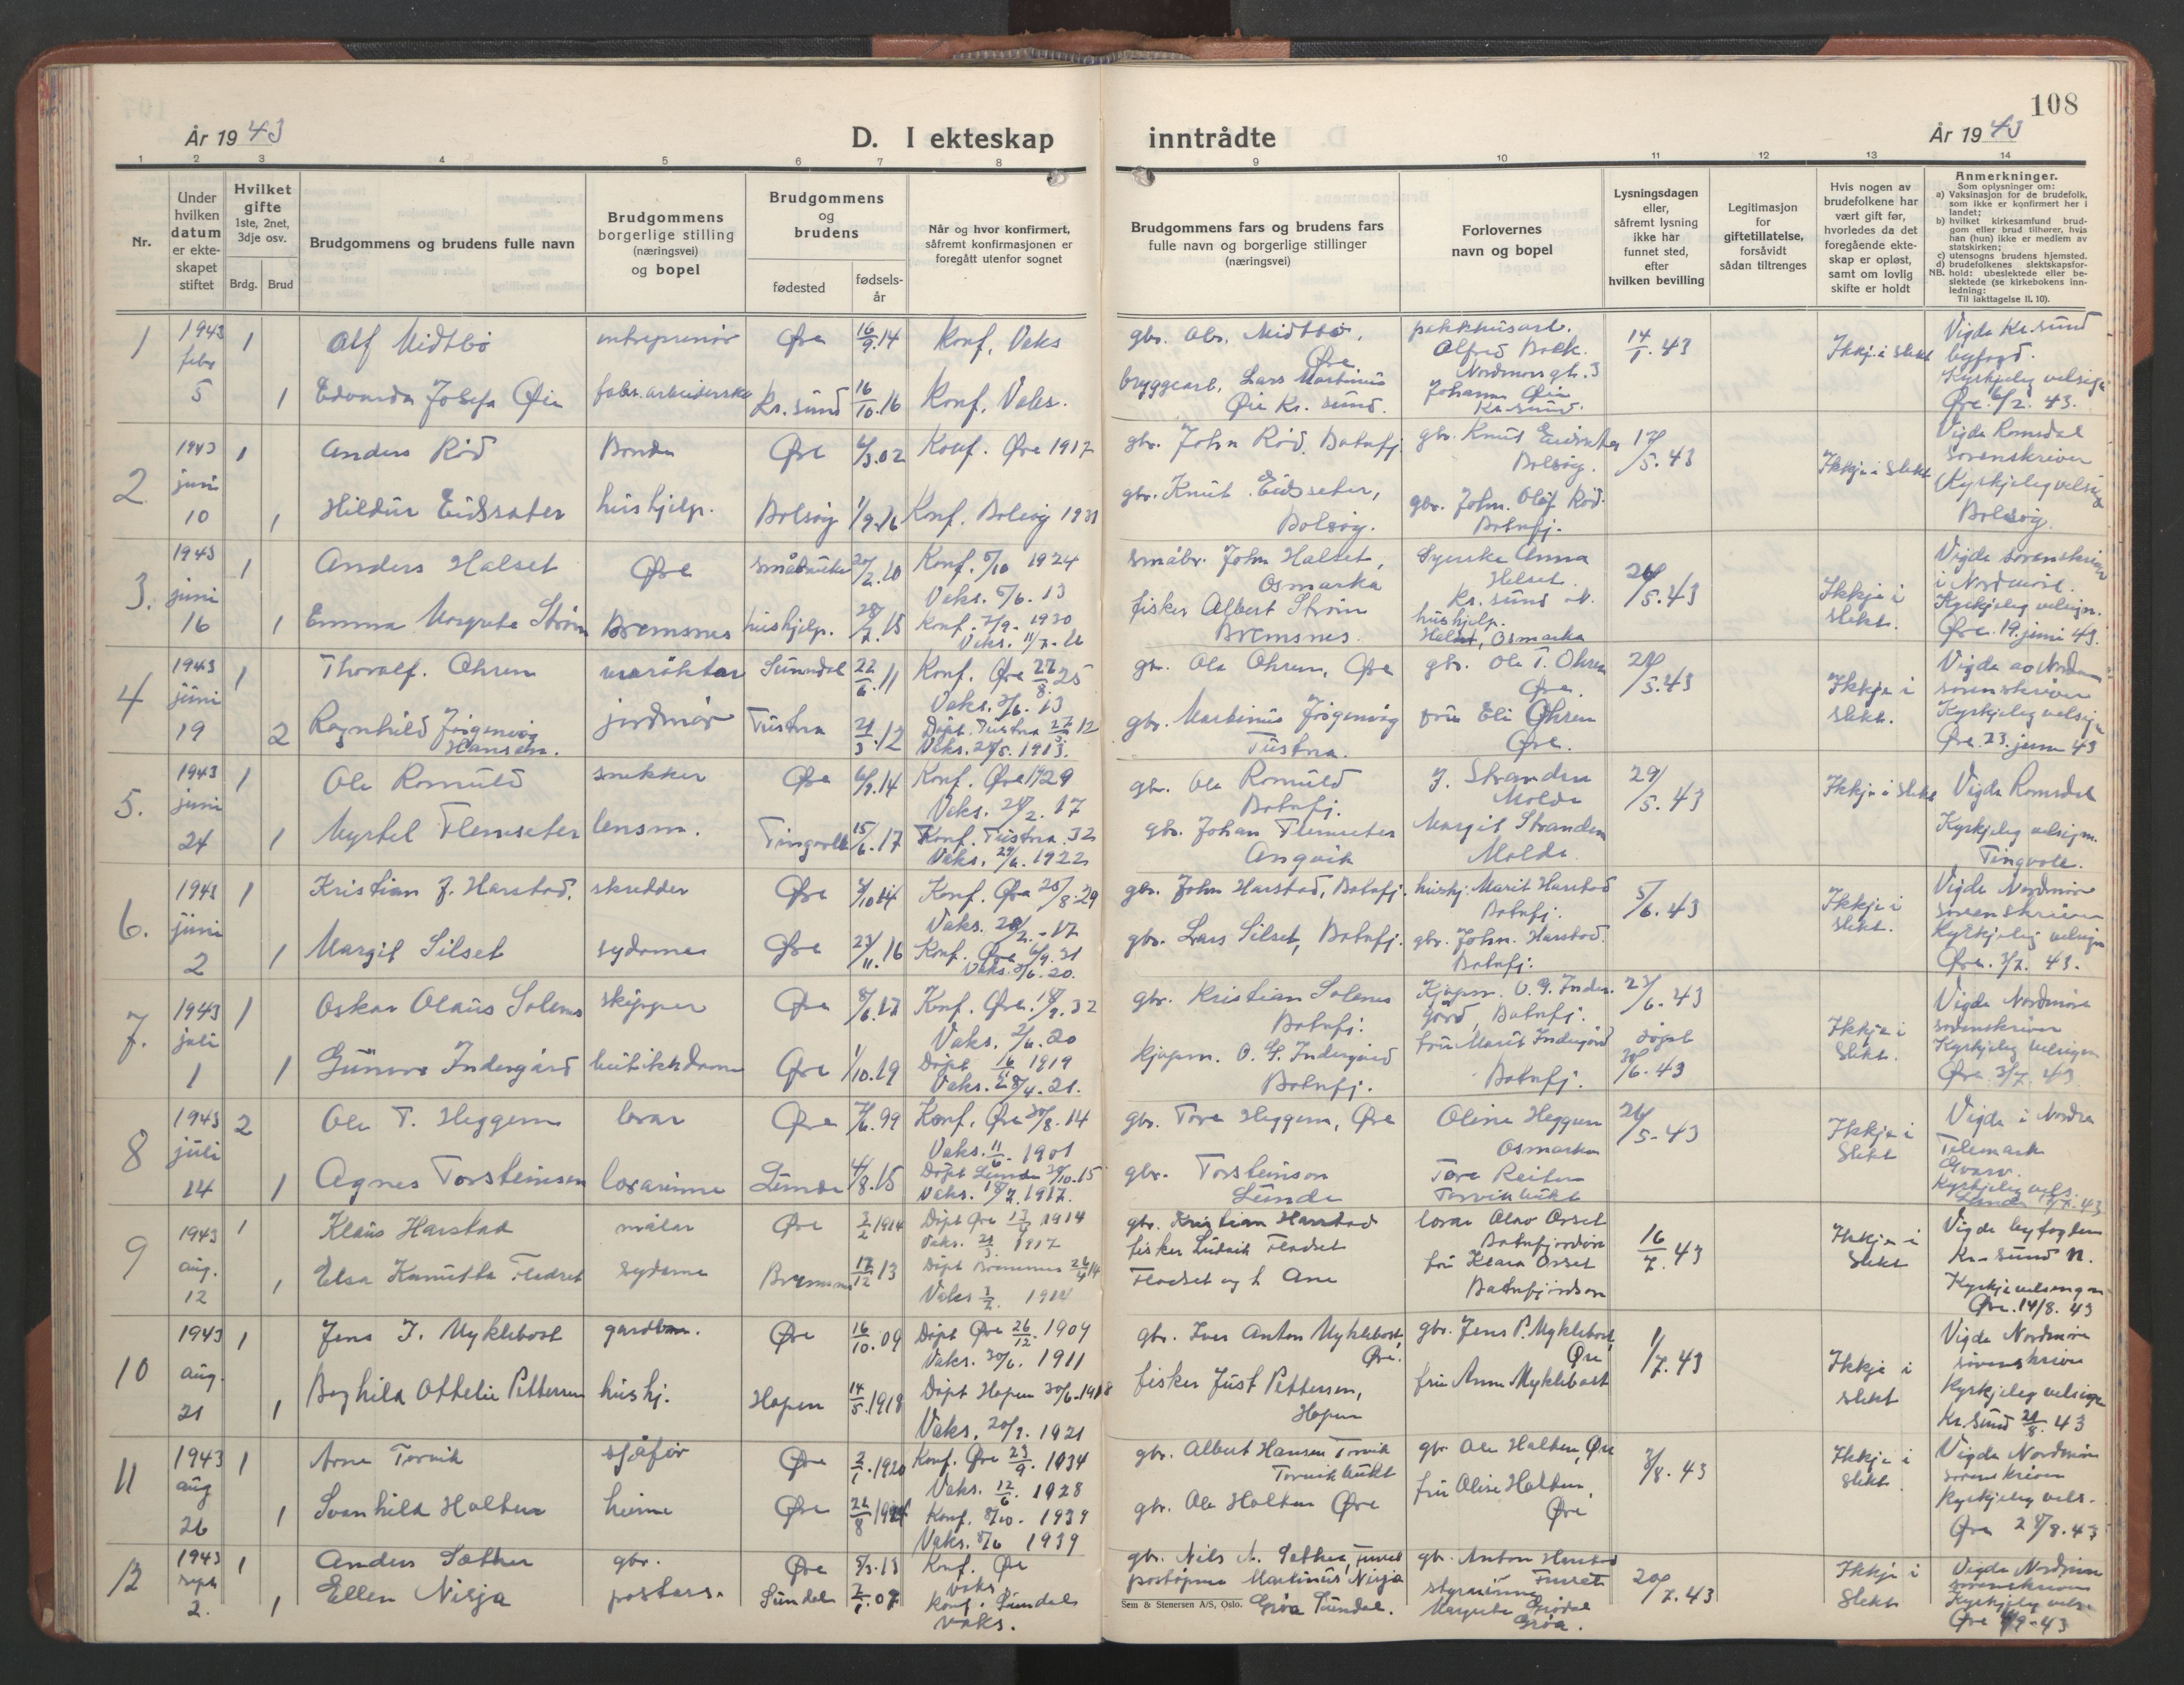 108
År 1943
D. I ekteskap inntrådte
År 1943
1 2 3 4 5 6 7 8 9 10 11 12 13 14
Nr.
Under hvilken datum er ekteskapet stiftet
Hvilket gifte 1ste, 2net, 3dje osv.
Brdg. Brud
Brudgommens og brudens fulle navn
Brudgommens borgerlige stilling (næringsvei) og bopel
Brudgommens og brudens
fødested
fødsels-år
Når og hvor konfirmert, såfremt konfirmasjonen er foregått utenfor sognet
Brudgommens fars og brudens fars fulle navn og borgerlige stillinger (næringsvei)
Forlovernes navn og bopel
Lysningsdagen eller, såfremt lysning ikke har funnet sted, efter hvilken bevilling
Legitimasjon for giftetillatelse, forsåvidt sådan tiltrenges
Hvis nogen av brudefolkene har vært gift før, hvorledes da det foregående ekteskap er opløst, samt om lovlig skifte er holdt
Anmerkninger.
Som oplysninger om:
a) Vaksinasjon for de brudefolk, som ikke er konfirmert her i landet;
b) hvilket kirkesamfund brudgom eller brud tilhører, hvis han (hun) ikke er medlem av statskirken;
c) utensogns brudens hjemsted.
d) brudefolkenes slektskapsforhold: ubeslektede eller beslektede (se kirkebokens innledning:
NB.
Til iakttagelse II. 10).
1 1943 febr 5
1 Alf Midtbø entreprenør Øre 16/9.14 Konf. Vaks
gbr. Abr. Midtbø, Øre
pakkhusarb. Alfred Bolk. Nordmørsgt. 3
14/1.43
Ikkje i slekt
Vigde Kr.sund byfogd. Kyrkjeleg velsign Øre 6/2. 43.
1 Edvarda Josefa Øie fabr.arbeiderske Kr.sund 16/10.16 Konf. Vaks.
bryggearb. Lars Martinus Øie Kr.sund.
Johann Øie Kr.sund.
2. 1943 juni 10
1 Anders Rød Bonde Øre 6/3.02 Konf. Øre 1917
gbr. John Rød, Batnfj.
gbr. Knut Eidsæter Bolsøy.
17/5.43
Ikkje i slekt
Vigde Romsdal sorenskriver Kyrkjeleg velsign Bolsøy.
1 Hildur Eidsæter hushjelp. Bolsøy 1/9.16 Konf. Bolsøy 1931
gbr. Knut Eidsseter, Bolsøy.
gbr. John. Olaf Rød. Batnfj.
3. 1943 juni 16
1 Anders Halset Øre småbruker 20/2.10 Konf. 5/10 1924 Vaks. 5/6. 13
småbr. John Halset, Osmarka
Syerske Anna Helset. Kr.sund N.
26/5.43
Ikkje i slekt.
Vigde sorenskriver i Nordmøre. Kyrkjeleg velsign. Øre. 19. juni 43.
1 Emma Margrete Strøm Bremsnes hushjelp. 28/7.15 Konf. 7/9. 1930 Vaks. 11/7.16
fisker Albert Strøm Bremsnes.
hushjelp. Helset, Osmarka
4 1943 juni 19
1 Thoralf. Ohren urørøktar Sunndal 22/6.11 Konf. Øre 27/8 25 Vaks. 3/6. 13
gbr. Ola Ohren, Øre
gbr. Ole T. Ohren Øre.
28/5.43
Ikkje i slekt.
Vigde av Nordm sorenskriver Kyrkjeleg velsign Øre. 23. juni 43
2 Ragnhild Jørgenvåg Hansen. jordmor Tustna 21/3.12 Døpt. Tustna 27/5 12 Vaks. 28/5. 1913.
gbr. Martinus Jørgenvåg Tustna.
fru Eli Ohren Øre.
5. 1943 juni 24
1 Ole Romuld snekker Øre 6/9.14 Konf. Øre 1929 Vaks. 24/2. 17
gbr. Ola Romuld Batnfj.
J. Stranden Molde
29/5.43
Ikkje i slekt
Vigde Romsdal Kyrkjeleg velsign. Tingvoll.
1 Myrtel Flemseter lensm. Tingvoll 15/6.17 Konf. Tustna. 32 Vaks. 29/6. 1922
gbr. Johan Flemseter Angvik
Margit Stranden Molde
6. 1943 juni 2
1 Kristian J. Harstad. skredder Øre 4/10.14 Konf. Øre 25/8.29 Vaks. 28/2.17
gbr. John Harstad, Batnfj.
hushj. Marit Harstad Batnfj.
5/6.43
Ikkje i slekt.
Vigde Nordmøre sorenskriver Kyrkjeleg velsign Øre. 3/7. 43.
1 Margit Silset sydame Øre 23/11.16 Konf. Øre 6/9.31 Vaks. 3/6. 20.
gbr. Lars Silset, Batnfj.
gbr. John. Harstad. Batnfj.
7. 1943 juli 1
1 Oskar Olaus Solenes skipper Øre 8/6.17 Konf. Øre. 18/9.32 Vaks. 2/6.20
gbr. Kristian Solenes Batnfj.
Kjøpm. O. G. Indergård, Batnfj.
23/6.43
Ikkje i slekt.
Vigde Nordmøre sorenskriver Kyrkjeleg velsign Øre. 3/7. 43
1 Gunvor Indergård butikkdame Øre 1/10.19 Døpt 6/1 1919 Vaks. 28/4.21.
kjøpm. O. G. Indergård Batnfj.
fru Marit Indergård Batnfj.
døpt 30/6.43
8 1943 juli 14
2 Ole T. Heggem lærar Øre 7/6.99 Konf. Øre 30/8.14 Vaks. 11/6. 1901
gbr. Tore Heggem, Øre
Oline Heggem Osmarken
26/5.43
Ikkje i slekt
Vigde i Nordre Telemark Gvarv. Kyrkjeleg vels. Lunde 14/7.43
1 Agnes Torsteinsen lærarinne Lunde 4/8.15 Døpt Lunde 30/10.15 Vaks. 18/7. 1917.
gbr. Torsteinson Lunde
Tore Reiten Torvikbukt
9 1943 aug. 12
1 Klaus Harstad målar Øre 3/2 1914 Døpt Øre 13/4 1914 Vaks. 21/3. 1917
gbr. Kristian Harstad
lærar Olav Orset Batnfjordøre
16/7.43
Ikkje i slekt
Vigde byfogden Kr.sund N. Kyrkjevelsingn Øre. 14/8. 43
1 Elsa Kanutta Fladset sydame Bremsnes 17/12 13 Døpt Bremsnes 26/4 14 Vaks 3/2. 1914
fisker Ludvik Fladset Fladset og h. Ane
fru Klara Orset Batnfjordsøre
10 1943 aug. 21
1 Jens I. Myklebost gardbr. Øre 16/10.09 Døpt Øre 26/12. 1909 Vaks. 30/6. 1911
gbr. Iver Anton Myklebost, Øre.
gbr. Jens P. Myklebost, Øre
1/7.43
Ikkje i slekt
Vigde Nordmøre sorenskriver Kyrkjeleg velsign Kr.sund 21/8. 43
1 Borghild Othelie Pettersen hushj. Hopen 14/5.1918 Døpt Hopen 30/6.1918 Vaks. 20/7. 1921
fisker Just Pettersen, Hopen
fru Anne Myklebost
11 1943 aug 26
1 Arne Torvik sjåfør Øre 2/1.1920 Konf. Øre 23/9. 1934 Vaks. 12/6. 1928
gbr. Albert Hansen Torvik Torvikbukt
gbr. Ole Halten, Øre
3/8.43
Ikkje i slekt
Vigde Nordmøre sorenskriver Kyrkjeleg vels. Øre 28/8.43
1 Svanhild Halten heime Øre 22/8 1924 Konf. 8/10. 1939 Vaks. 8/6 1939
gbr. Ole Halten Øre
fru Olise Halten, Øre
12 1943 sept 2.
1 Anders Sæther gbr. Øre 5/3.13 Konf. Øre Vaks.
gbr. Nils A. Sæther,
gbr. Anton Harstad
20/7.43
Ikkje i slekt
Vigde Nordmøre sorenskriver Kyrkjeleg vels. Øre 4/9-43
1 Ellen Nisja postass. Sundal 2/1.07 Konf. Sundal Vaks.
postopner Martinus Nisja Grøa Sundal.
styrarinne Margrete Grødal Grøa.
Sem & Stenersen A/S, Oslo.